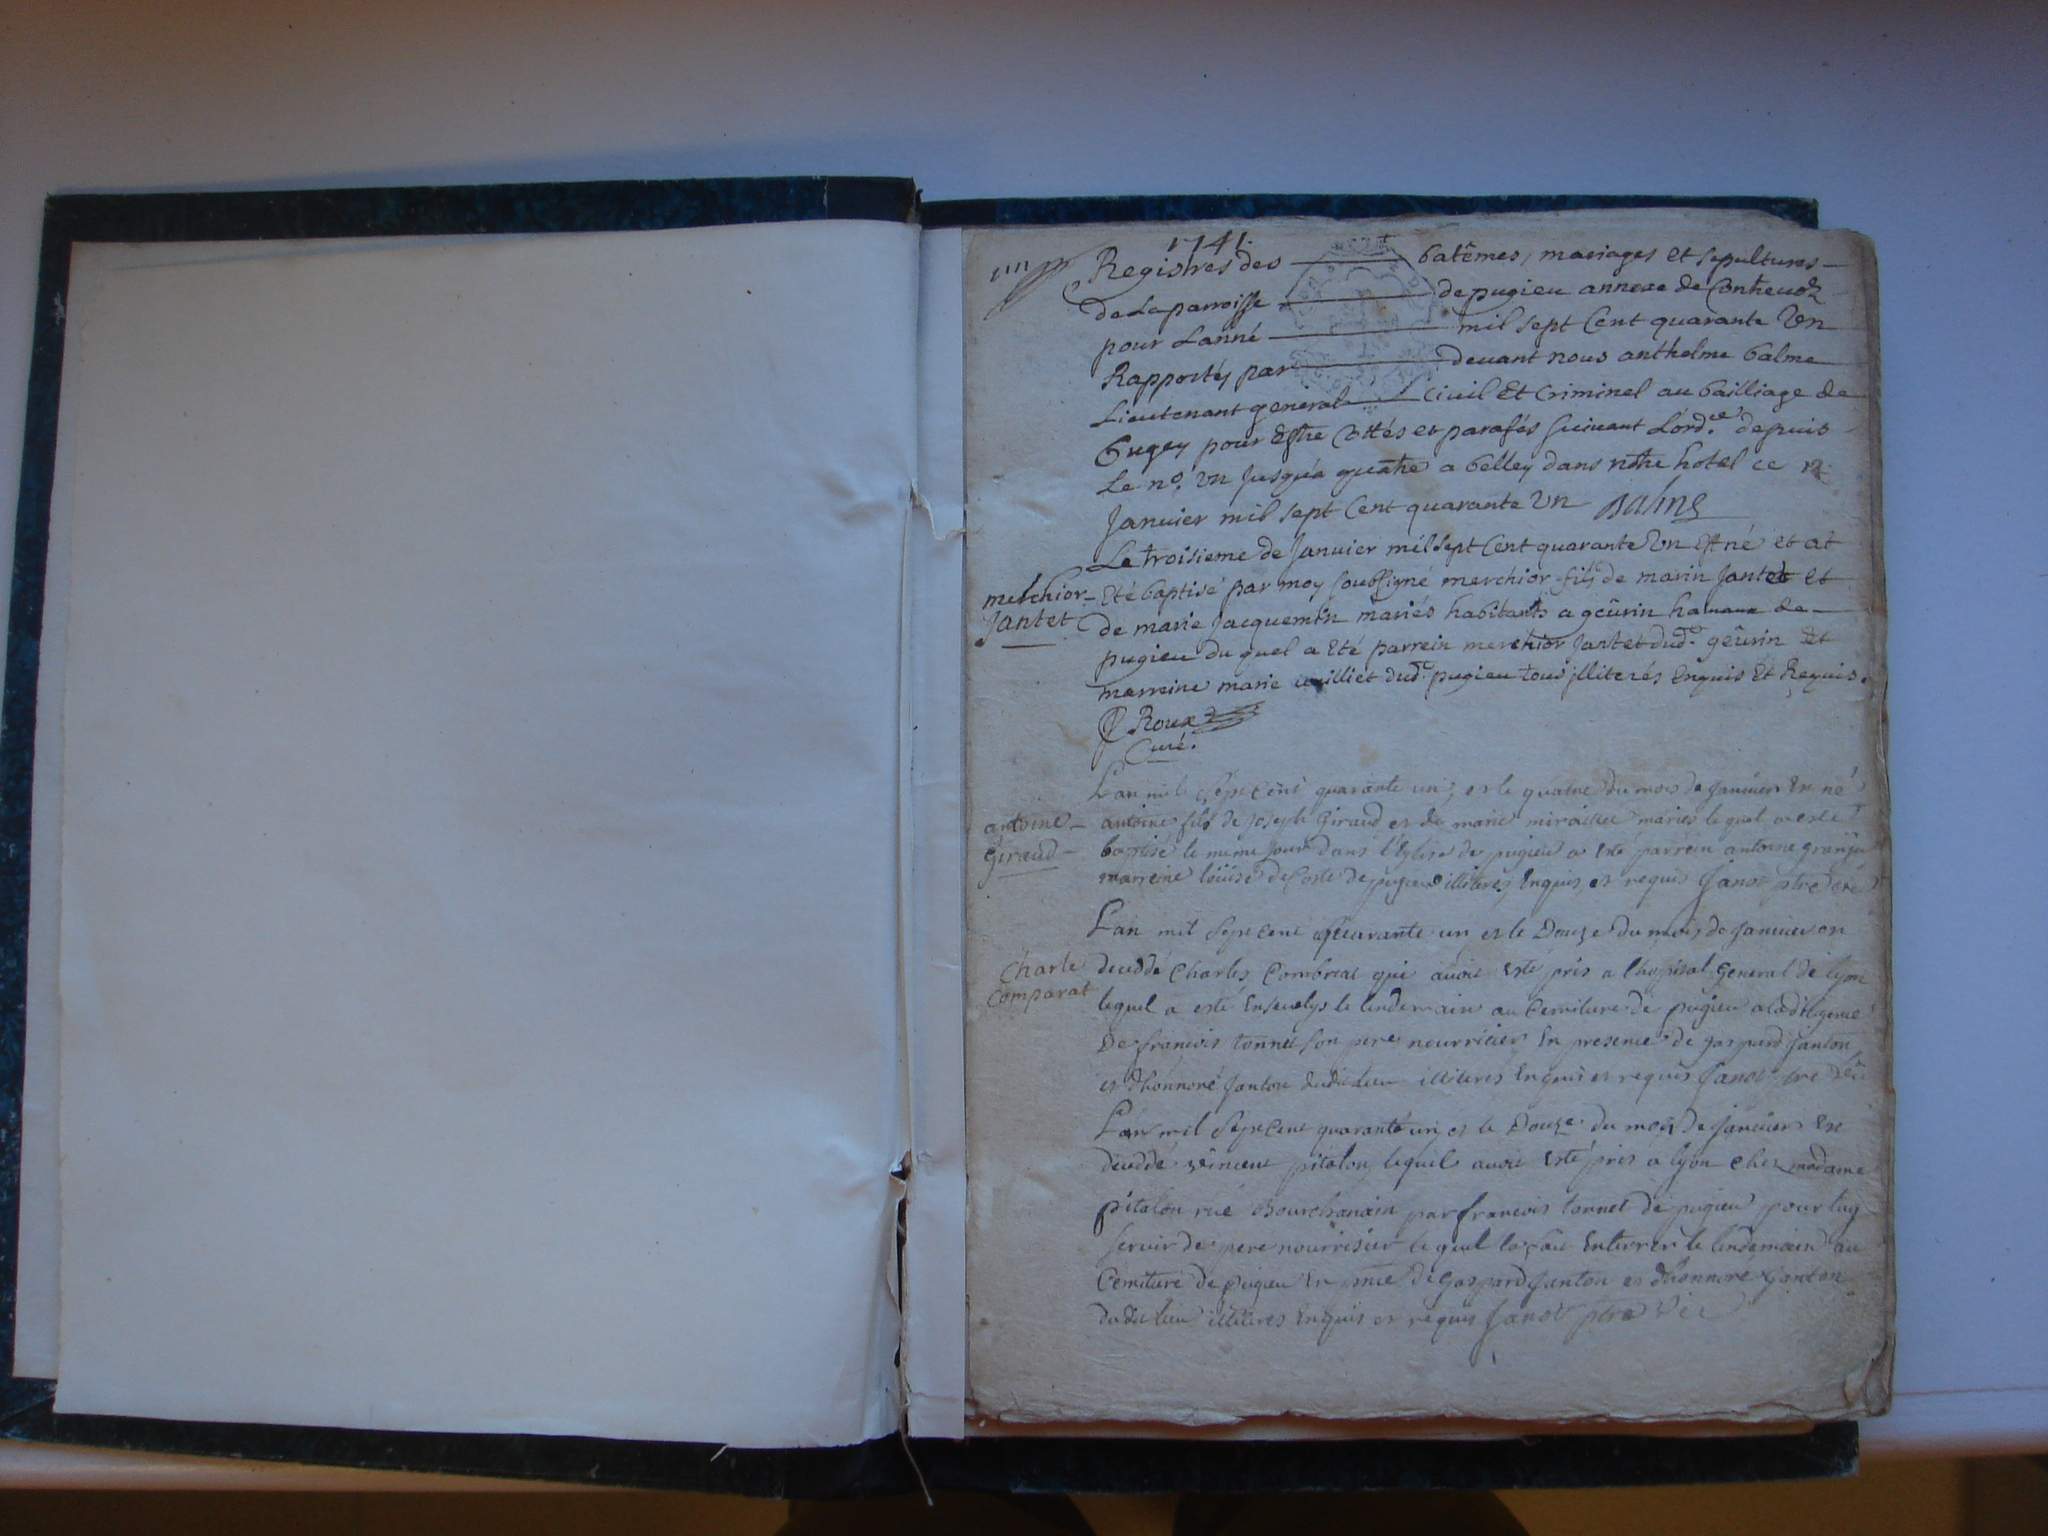 1741.
Registres des batêmes, mariages et sepultures
de La parroisse de pugieu annexe de Contrevoz
pour Lanné mil sept Cent quarante Un
Rapportés par devant nous anthelme balme
Lieutenant general civil Et Criminel au bailliage de
bugey pour Estre Cottés et parafés suivant L'ord.ce depuis
Le n.o Un jusqu'a quatre a belley dans notre hotel ce
Janvier mil sept Cent quarante Un Balme
Le troisieme de Janvier mil sept Cent quarante Un Est né et at
melchior Jantet
Eté baptisé par moy soubsigné merchior fils de marin Jantet et
de marie Jacquemin mariés habitants a geûrin hamaux de
pugieu du quel a Eté parrein merchior Jantet dud.t geûrin Et
marreine marie dud.t pugieu tous jlliterés Enquis Et Requis.
Roux
Curé.
L'an mil sept cent quarante un, et le quatre du mois de janvier Est né
antoine Giraud
antoine fils de joseph Giraud et de marie mariés le quel a esté
baptisé le meme jour dans l'Eglise de pugieu a Esté parrein antoine
marreine loüise de pugieu illiteres Enquis et requis Janot ptre
L'an mil sept cent quarante un et le Douze du mois de janvier est
Charle Comparat
decedé Charles Combrat qui avoit Esté pris a l'hopital General de lyon
lequel a esté Ensevelys le lendemain au Cemitiere de pugieu a la diligence
De francois tonnet son pere nourricier En presence de gaspard janton
et d'honnoré janton dudit lieu illiteres Enquis et requis Janot ptre vic
L'an mil sept cent quarante un, et le Douze du mois de janvier Est
decedé vincent pitalon lequel avoit Esté pris a lyon chez madame
pitalon rüe Bourchanain par francois tonnet de pugieu pour luy
servir de pere nourrisier le quel la fait Enterrer le lendemain au
Cemitiere de pugieu En pnce de Gaspard janton et d'honnoré janton
dudit lieu illiteres Enquis et requis Janot ptre vic